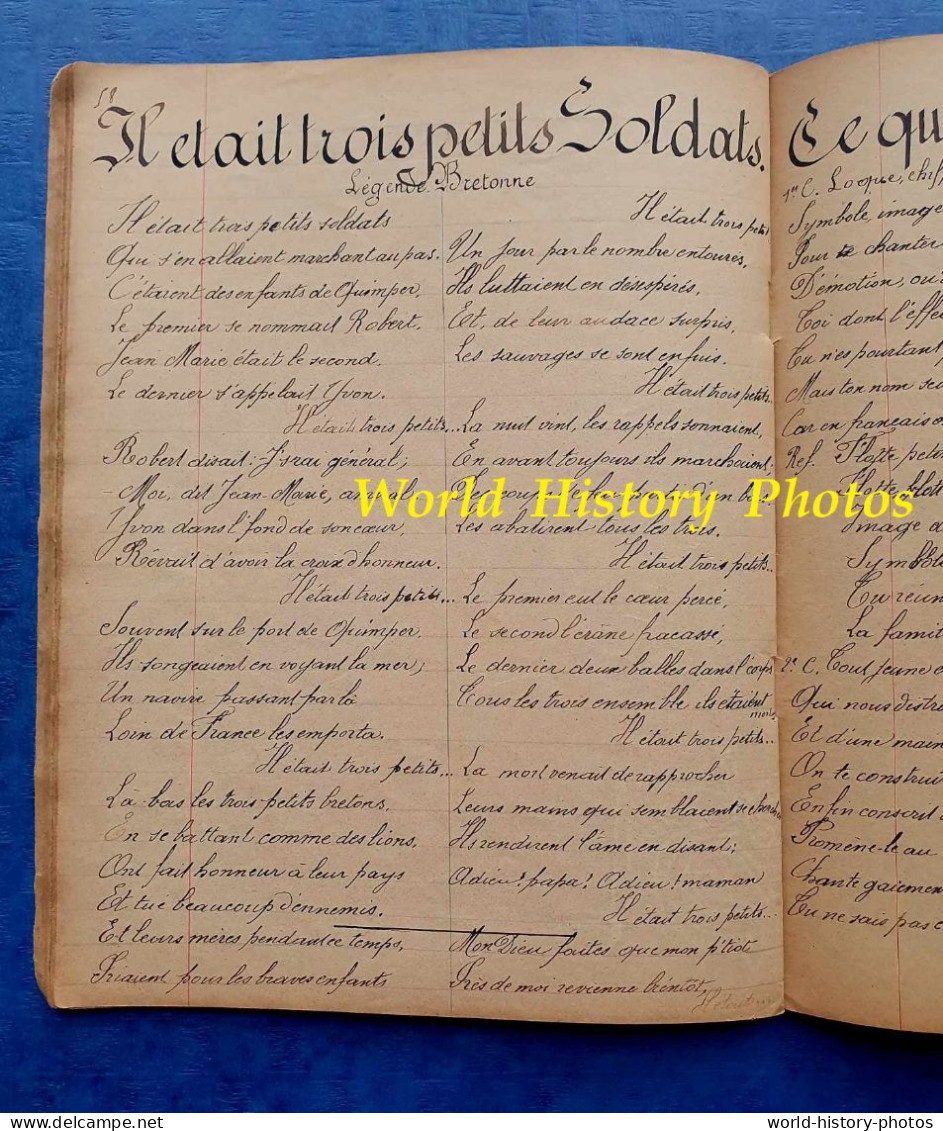 58
Il etait trois petits Soldats.
Légende Bretonne
Il était trois petits soldats
Qui s'en allaient marchant au pas.
C'étaient des enfants de Quimper,
Le premier se nommait Robert.
Jean Marie était le second.
Le dernier s'appelait Yvon.
Il était trois petits...
Robert disait: J'srai général;
- Moi, dit Jean-Marie, amiral,
Yvon dans l'fond de son cœur,
Rêvait d'avoir la croix d'honneur.
Il était trois petits...
Souvent sur le port de Quimper,
Ils songeaient en voyant la mer;
Un navire passant par là
Loin de France les emporta.
Il était trois petits...
Là bas les trois petits bretons,
En se battant comme des lions,
Ont fait honneur à leur pays
Et tué beaucoup d'ennemis.
Et leurs mères pendant ce temps,
Priaient pour les braves enfants
Il était trois petits
Un jour par le nombre entourés,
Ils luttaient en désespérés,
Et, de leur audace surpris,
Les sauvages se sont enfuis.
Il était trois petits..
La nuit vint, les rappels sonnaient,
En avant toujours ils marchaient;
d'un bois
Les abatirent tous les trois.
Il était trois petits..
Le premier eut le cœur percé,
Le second l'crâne fracassé,
Le dernier deux balles dans l'corps
Tous les trois ensemble ils étaient morts
Il était trois petits..
La mort venait de rapprocher
Leurs mains qui semblaient se chercher
Ils rendirent l'âme en disant:
Adieu! papa! Adieu! maman
Il était trois petits...
Mon Dieu faites que mon p'tiot
Près de moi revienne bientôt,
Il était
Ce qu
1er C. Loque, chif
Symbole, image
Pour chanter
D'émotion, ou
Toi dont l'effe
Tu n'es pourtant
Mais ton nom se
Car en français on
Ref. Flotte peti
Flotte, flott
Image d
Symbole
Tu réun
La famil
2e C. Tout jeune e
Qui nous distri
Et d'une main
On te construit
Enfin conscrit
Promène-le au
Chante gaiemen
Tu ne sais pas c
World History Photos
delcampe.net
world-history-photos